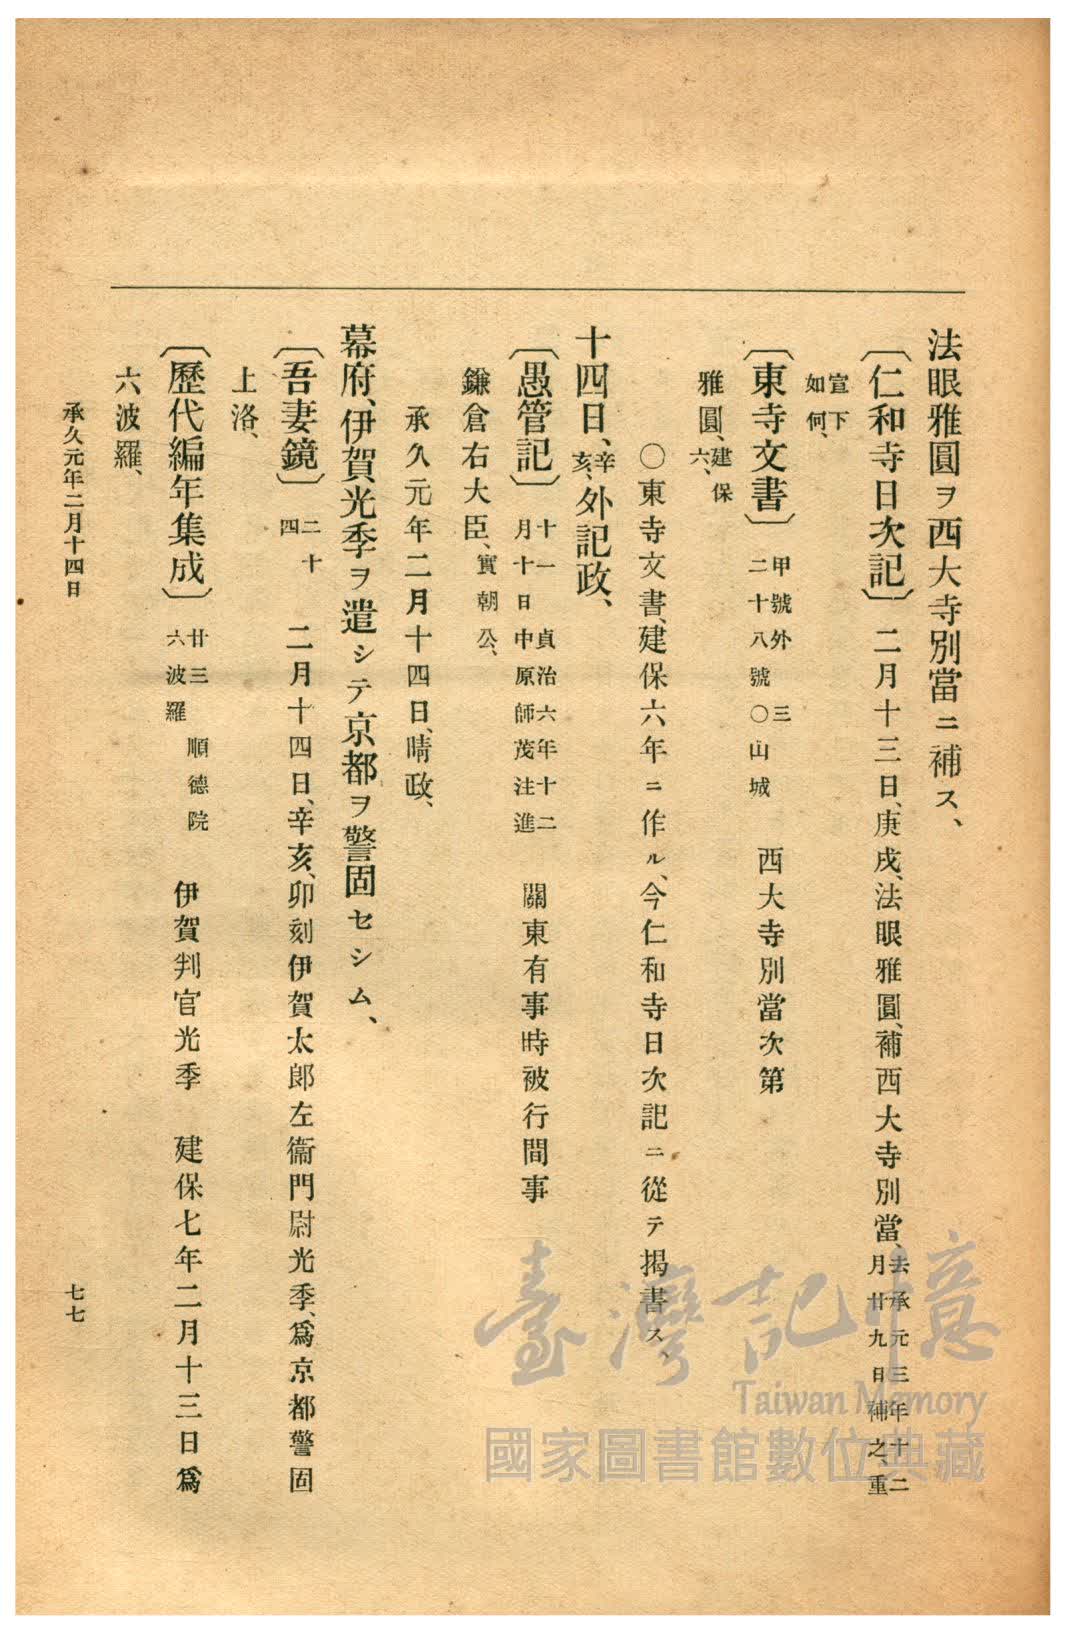 法眼雅圓ヲ西大寺別當ニ補ス、
〔仁和寺日次記〕 二月十三日、庚戌、法眼雅圓、補西大寺別當、去承元三年十二月廿九日補之、重
宣下如何、
〔東寺文書〕 甲號外 三二十八號〇山城 西大寺別當次第
雅圓、建保六、
〇東寺文書、建保六年ニ作ル、今仁和寺日次記ニ從テ揭書ス、
十四日、辛亥、外記政、
〔愚管記〕 十一 貞治六年十二月十日中原師茂注進 關東有事時被行間事
鎌倉右大臣、實朝公、
承久元年二月十四日、晴、政、
幕府、伊賀光季ヲ遣シテ京都ヲ警固セシム、
〔吾妻鏡〕 二十四 二月十四日、辛亥、卯刻伊賀太郎左衞門尉光季、爲京都警固
上洛、
〔歷代編年集成〕 廿三 順德院六波羅 伊賀判官光季 建保七年二月十三日爲
六波羅、
承久元年二月十四日
七七
臺灣記憶
Taiwan Memory
國家圖書館數位典藏